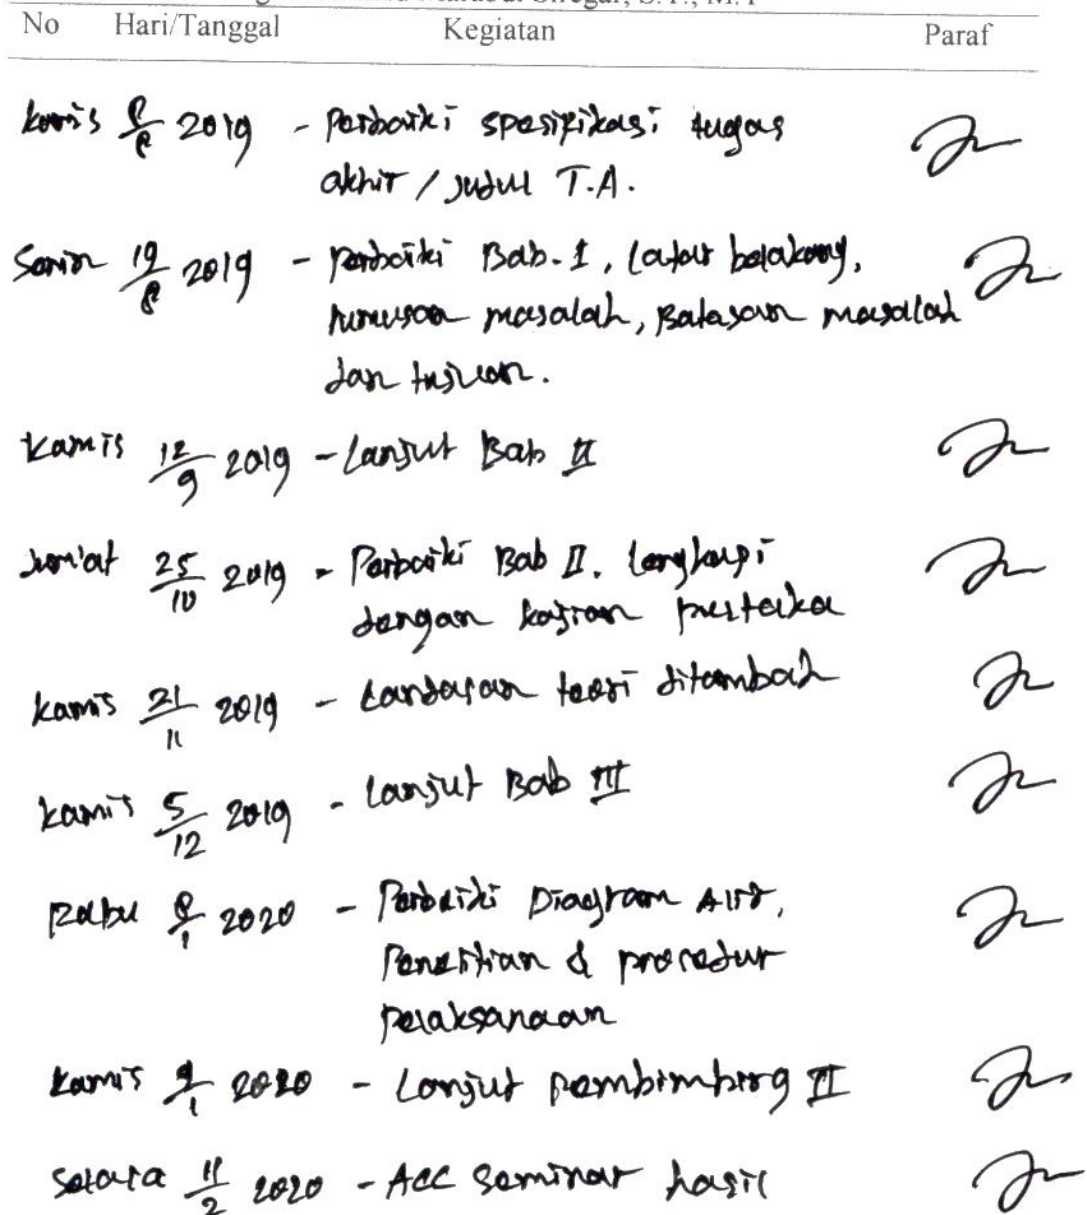 Siregar, S.T., M.T
No Hari/Tanggal Kegiatan Paraf
Kamis 8/8 2019 - Perbaiki spesifikasi tugas
akhir / Judul T.A.
Senin 19/8 2019 - Perbaiki Bab. 1, Latar belakang,
rumusan masalah, Batasan masalah
dan tujuan.
Kamis 12/9 2019 - Lanjut Bab II
Jum'at 25/10 2019 - Perbaiki Bab II. lengkapi
dengan kajian pustaka
Kamis 21/11 2019 - Landasan teori ditambah
Kamis 5/12 2019 - Lanjut Bab III
Rabu 8/1 2020 - Perbaiki Diagram Alir,
Penelitian & prosedur
pelaksanaan
Kamis 9/1 2020 - Lanjut pembimbing II
Selasa 11/2 2020 - ACC Seminar hasil